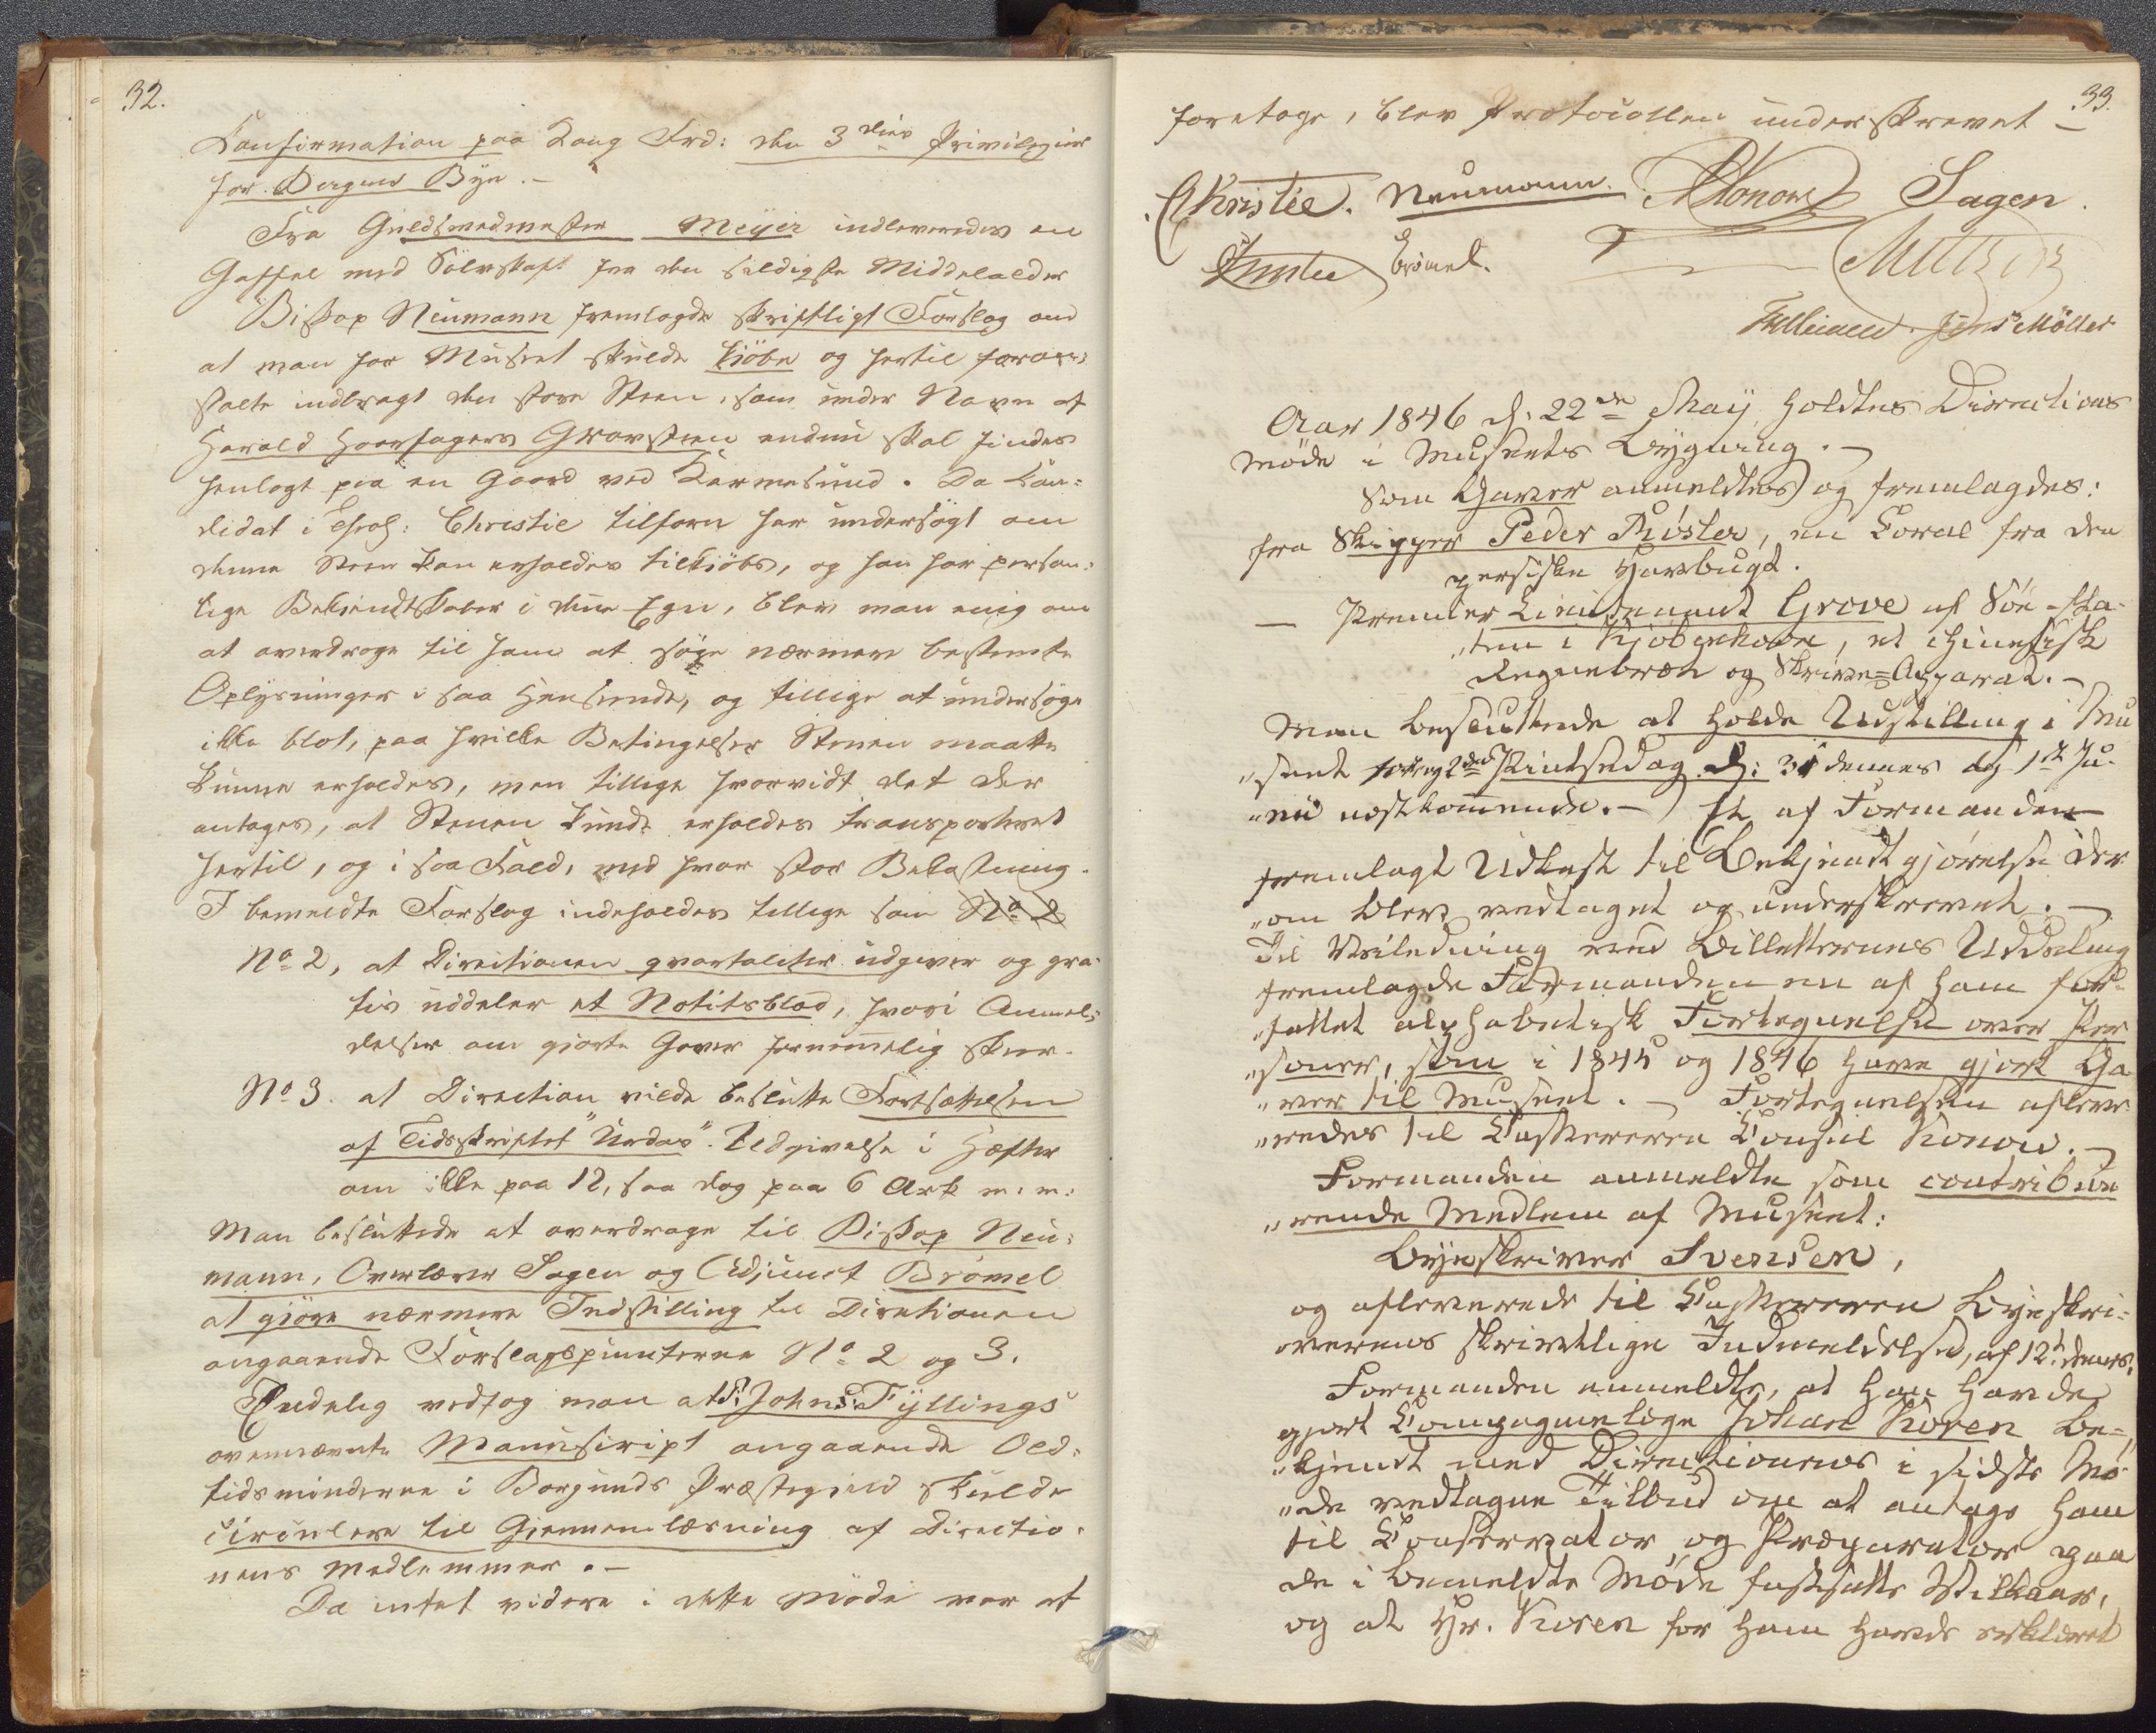 32.
Confirmation paa Kong Frd: den 3dies Privilegier
for Bergens Bye. –
Fra Guldsmedmester Meyer indleveredes en
Gaffel med Sølvskaft fra den sildigste Middelalder
Biskop Neumann fremlagde skriftligt Forslag om
at man for Museet skulde kjöbe og hertil foran-
stalte indbragt den store Steen, som under Navn af
Harald Haarfagers Gravsteen endnu skal findes
henlagt paa en Gaard ved Karmesund. Da Can-
didat i Theol: Christie tilforn har undersögt om
denne Steen kan erholdes tilkiöbs, og han har person-
lige Bekiendtskaber i denne Egn, blev man enig om
at overdrage til ham at söge nærmere bestemte
Oplysninger i saa Henseende, og tillige at undersöge
ikke blot, paa hvilke Betingelser Stenen maatte
kunne erholdes, men tillige hvorvidt det der
antages, at Stenen kunde erholdes transporteret
hertil, og i saa Fald, med hvor stor Bekostning.
I bemeldte Forslag indeholdes tillige som No 2
No 2, at Directionen qvartaliter udgiver og gra-
tis uddeler et Notitsblad, hvori Anmel-
delser om giorte Gaver fornemmelig skeer.
No 3. at Direction vilde beslutte Fortsættelsen
af Tidsskriftet "Urdas" Udgivelse i Hæfter
om ikke paa 12, saa dog paa 6 Ark m: m:
Man besluttede at overdrage til Biskop Neu-
mann, Overlærer Sagen og Adjunct Brömel
at giöre nærmere Indstilling til Directionen
angaaende Forslagspuncterne No 2 og 3.
Endelig vedtog man at P: Johns: Fyllings
ovennævnte Manuscript angaaende Old-
tidsminderne i Borgunds Præstegield skulde
circulere til Giennemlæsning af Directio-
nens Medlemmer. –
Da intet videre i dette Möde var at
33.
foretage, blev Protocollen underskrevet –
Christie. Neumann. Konow Sagen.
Brömel.
Jens Möller
Aar 1846 d: 22de May holdtes Directions
Møde i Museets Bygning. –
Som Gaver anmeldtes og fremlagdes:
fra Skipper Peder Röster, en Coral fra den
persiske Havbugt.
– Premier Lieutenant Grove af Söe-Eta-
"ten i Kjøbenhavn, et chinesisk
Regnebræt og Skrive-Apparat. –
Man besluttede at holde Udstilling i Mu
"seet 1ste og 2den Pintsedag d: 31 dennes og 1ste Ju-
"nii næstkommende. – Et af Formanden
fremlagt Udkast til Bekjendtgjørelse der
"om blev vedtaget og underskrevet. –
Til Veiledning ved Billetternes Uddeling
fremlagde Formanden en af ham for-
"fattet alphabetisk Fortegnelse over Per
"soner, som i 1845 og 1846 have gjort Ga
"ver til Museet. – Fortegnelsen afleve
"redes til Cassereren Consul Konow. –
Formanden anmeldte som contribue
"rende Medlem af Museet:
Byeskriver Svensen,
og afleverede til Cassereren Byeskri-
verens skrivtlige Indmeldelse, af 12te dennes.
Formanden anmeldte, at han havde
gjort Compagnielæge Johan Koren be-
"kjendt med Directionens i sidste Mø-
"de vedtagne Tilbud om at antage ham
til Conservator og Præparator paa
de i bemeldte Møde fastsatte Vilkaar,
og at Hr. Koren for ham havde erklæret